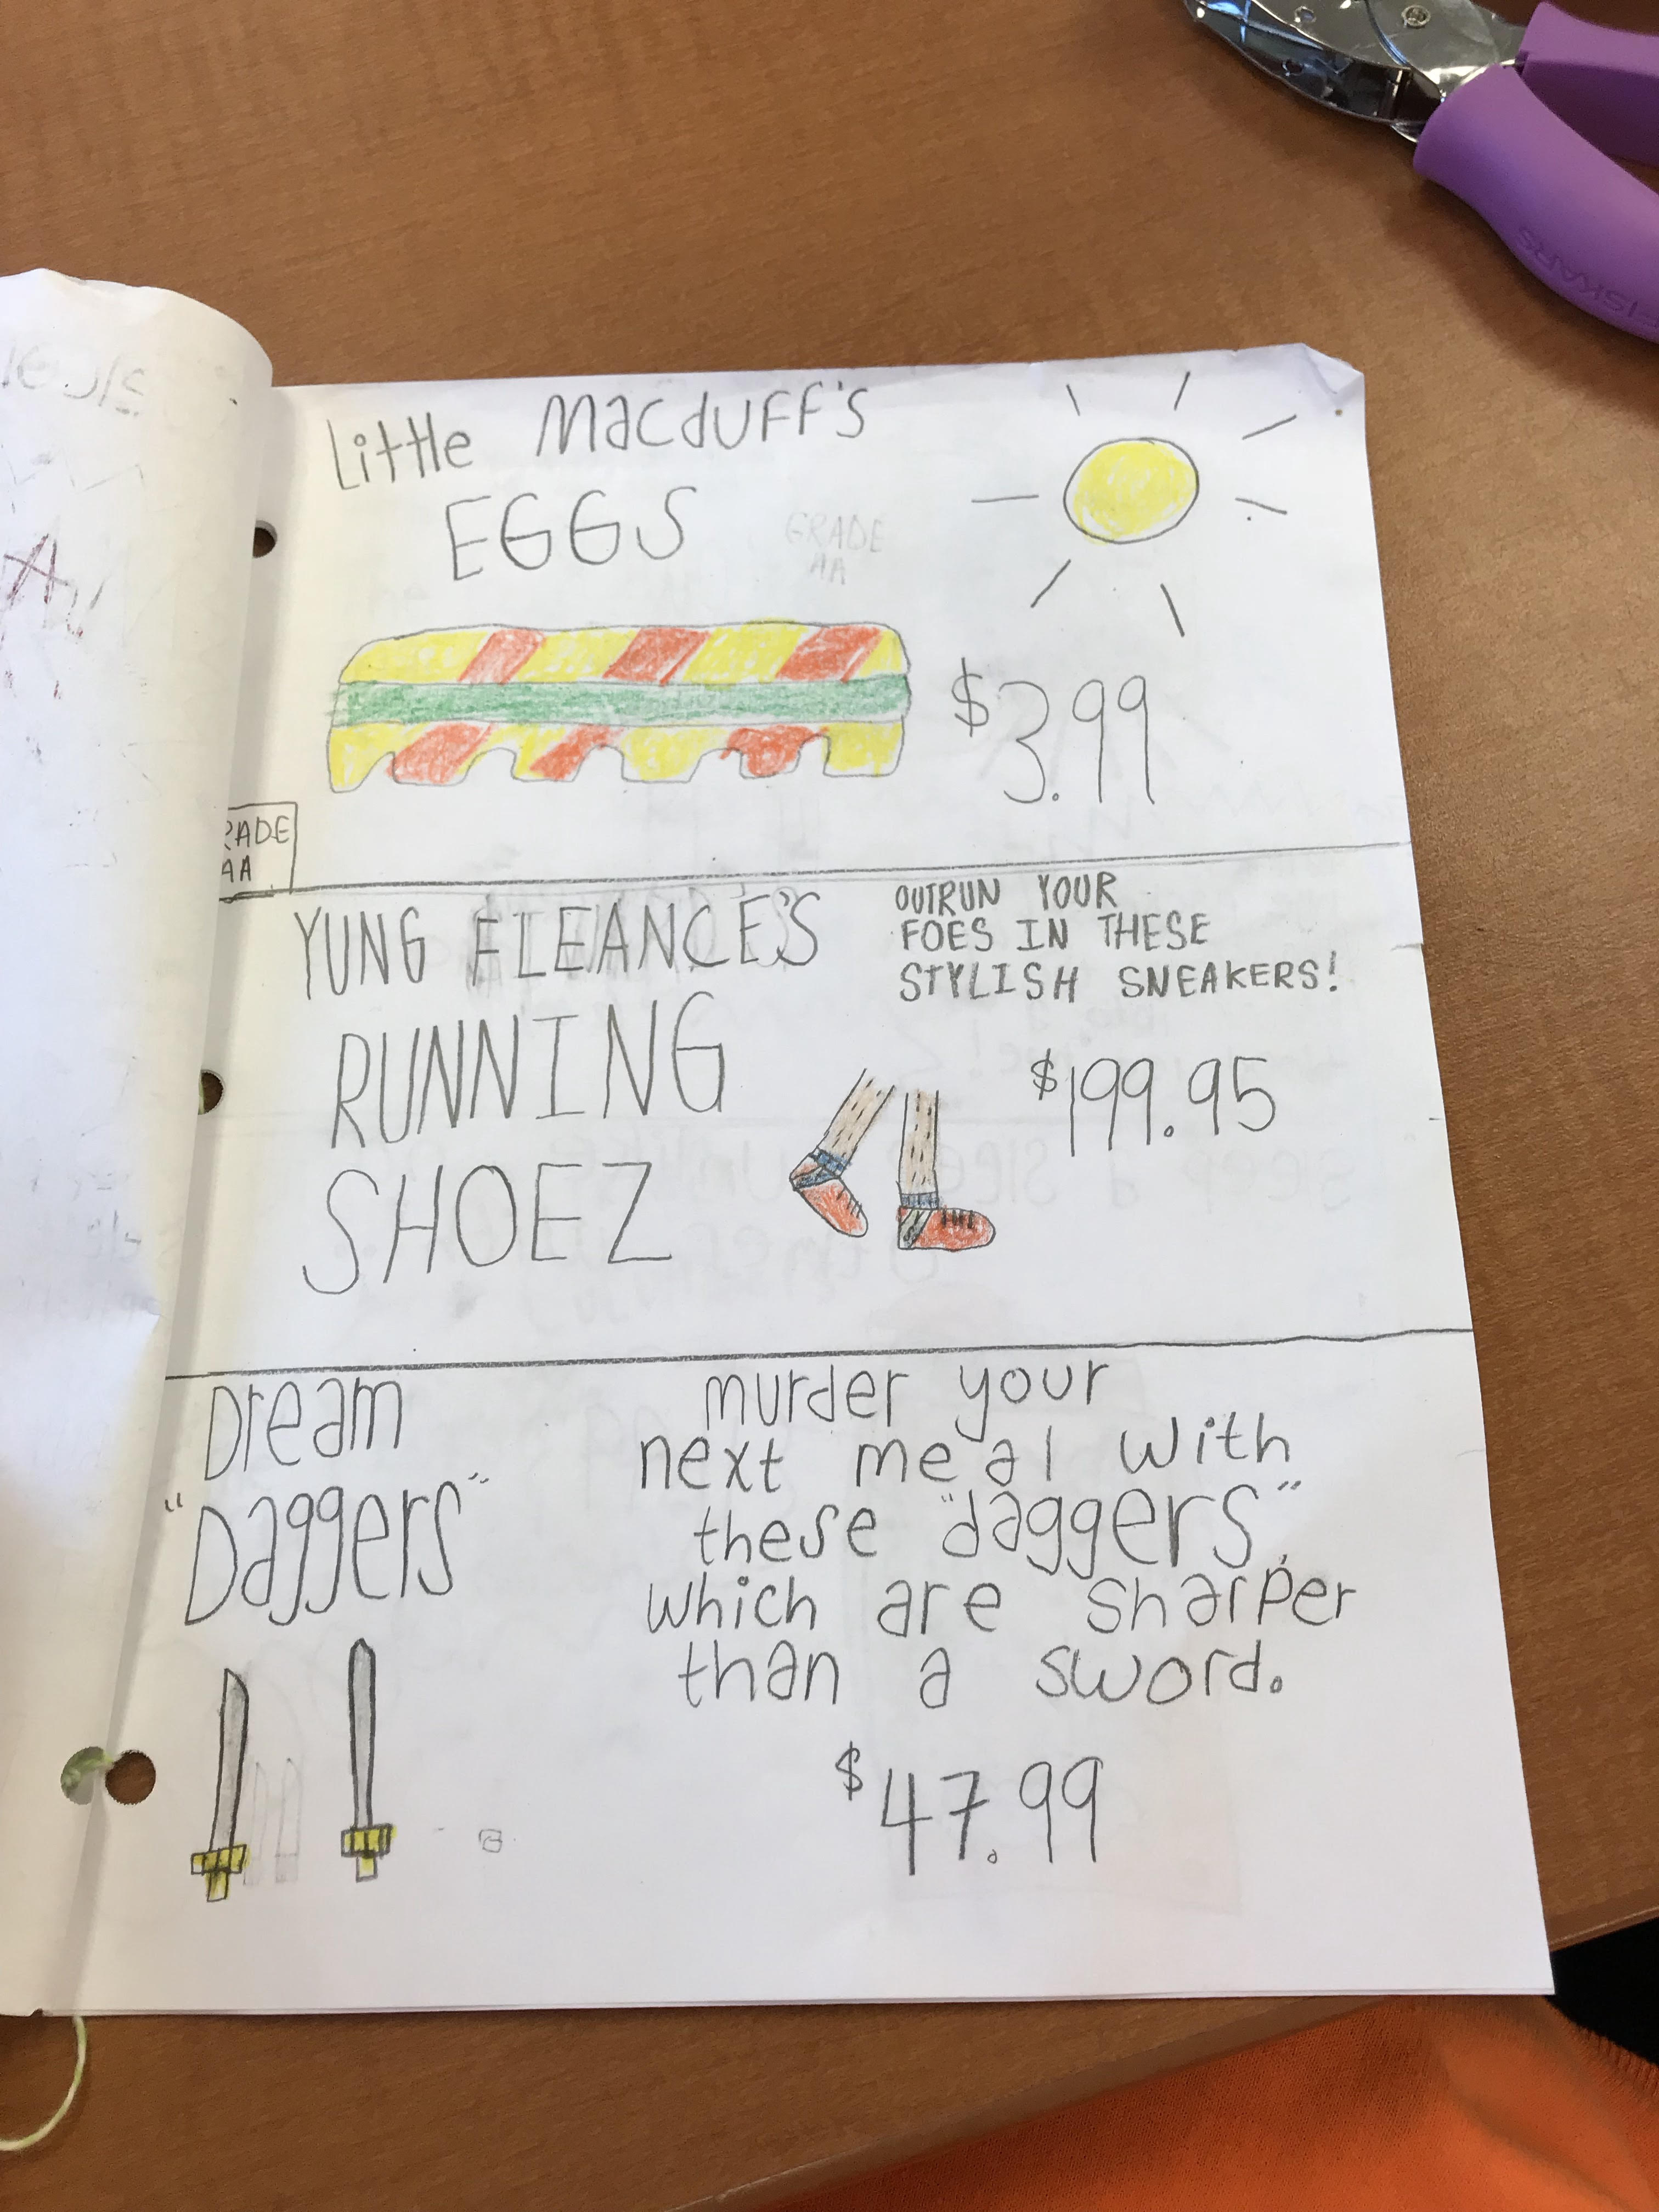 Little Macduff's
EGGS
GRADE
AA
$3.99
RADE
AA
YUNG FLEANCE'S
RUNNING
SHOEZ
OUTRUN YOUR
FOES IN THESE
STYLISH SNEAKERS!
$199.95
Dream
"Daggers"
murder your
next meal with
these "daggers"
which are sharper
than a sword.
$47.99
FISKARS